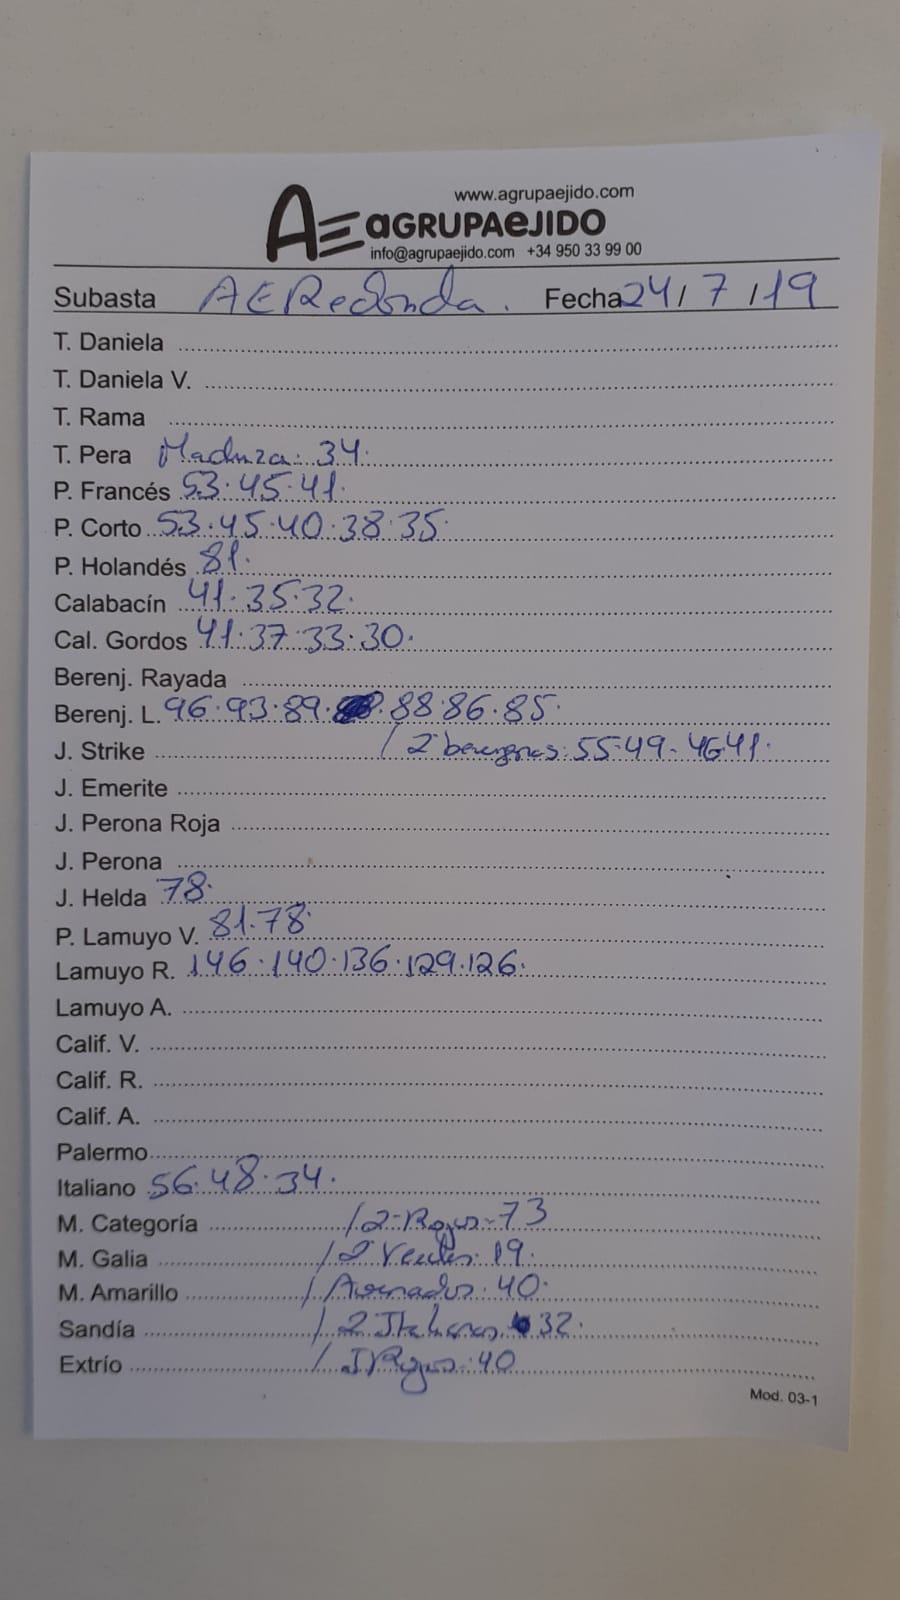 www.agrupaejido.com
AE aGRUPAeJIDO
info@agrupaejido.com +34 950 33 99 00
Subasta AERedonda. Fecha 24/7/19
T. Daniela
T. Daniela V.
T. Rama
T. Pera Madurza: 34.
P. Francés 53.45.41.
P. Corto 53.45.40.38.35.
P. Holandés 81.
Calabacín 41.35.32.
Cal. Gordos 41.37.33.30.
Berenj. Rayada
Berenj. L. 96.93.89. 88.86.85.
J. Strike / 2ª berengenas: 55.49.46.41.
J. Emerite
J. Perona Roja
J. Perona
J. Helda 78.
P. Lamuyo V. 81.78.
Lamuyo R. 146.140.136.129.126.
Lamuyo A.
Calif. V.
Calif. R.
Calif. A.
Palermo
Italiano 56.48.34.
M. Categoría / 2ª Rojos - 73
M. Galia / 2ª Verdes: 19.
M. Amarillo / Asurados: 40.
Sandía / 2 Italianos 32.
Extrío / I Rojos: 40
Mod. 03-1